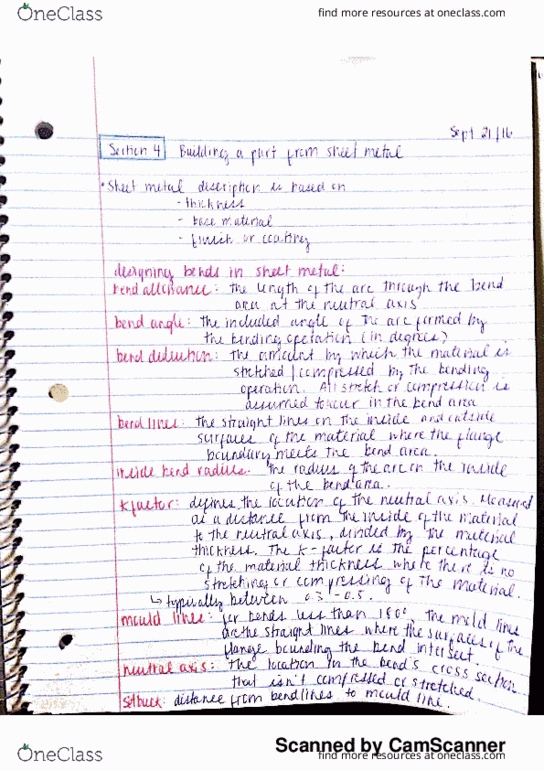 OneClass
find more resources at oneclass.com
Sept 21/16
Section 4 Building a part from sheet metal
• Sheet metal description is based on
- thickness
- base material
- finish or coating
designing bends in sheet metal:
bend allowance: the length of the arc through the bend
area at the neutral axis
bend angle: the included angle of the arc formed by
the bending operation (in degrees)
bend deduction: the amount by which the material is
stretched / compressed by the bending
operation. All stretch or compression is
assumed to occur in the bend area
bend lines: the straight lines on the inside and outside
surfaces of the material where the flange
boundary meets the bend area.
inside bend radius: the radius of the arc on the inside
of the bend area.
k factor: defines the location of the neutral axis. Measured
as a distance from the inside of the material
to the neutral axis, divided by the material
thickness. The k-factor is the percentage
of the material thickness where there is no
stretching or compressing of the material.
↳ typically between 0.3 - 0.5.
mould lines: for bends less than 180°, the mold lines
are the straight lines where the surfaces of the
flange bounding the bend intersect.
neutral axis: The location in the bend's cross section
that isn't compressed or stretched.
setback: distance from bend lines to mould line.
Scanned by CamScanner
OneClass
find more resources at oneclass.com